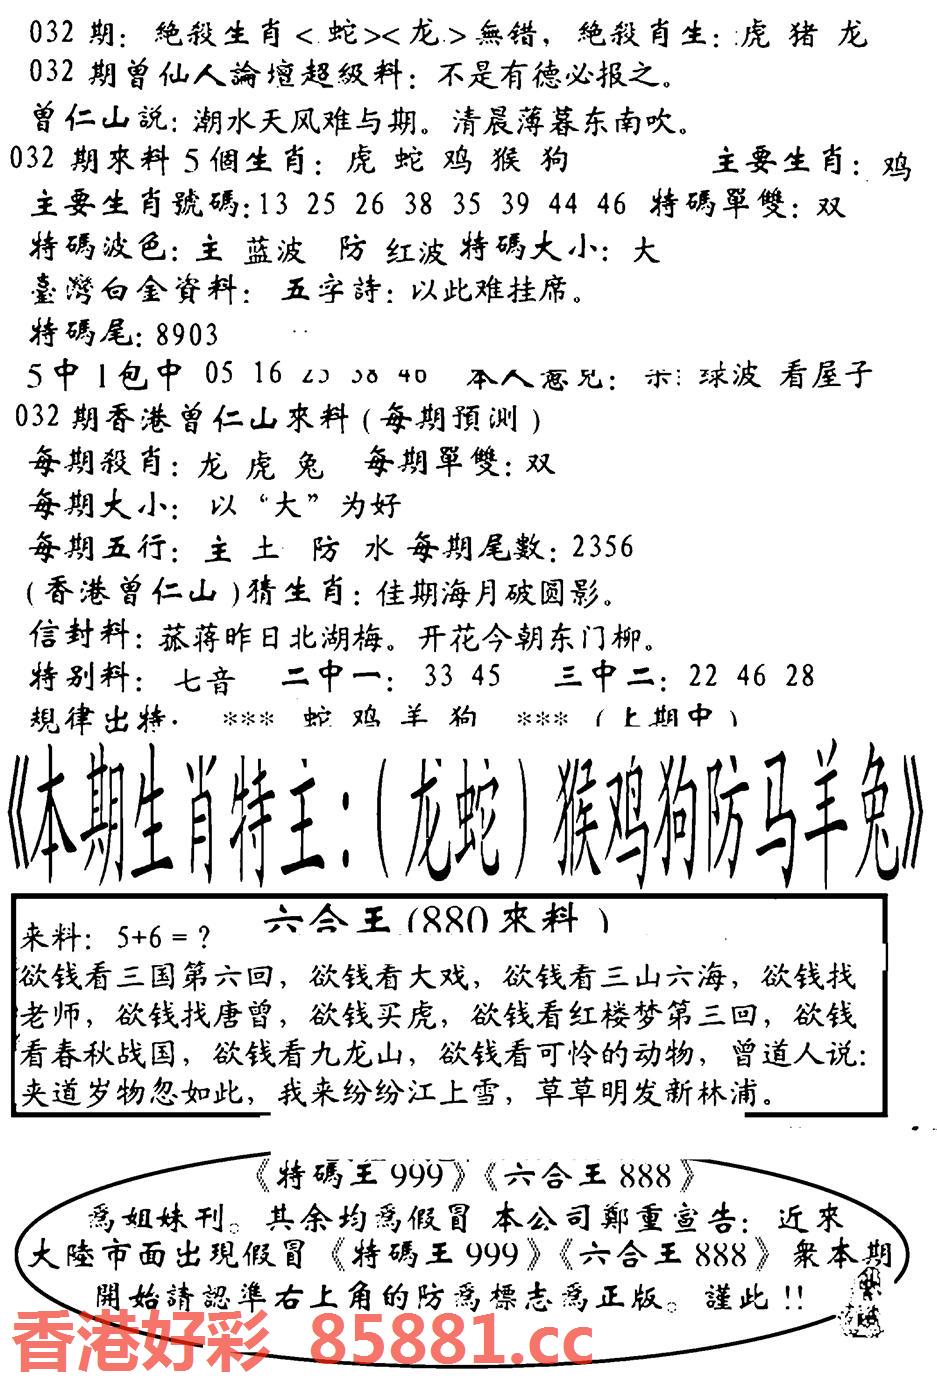 032 期：絶殺生肖<蛇><龙>無错，絶殺肖生：虎 猪 龙
032 期曾仙人論壇超級料：不是有德必报之。
曾仁山説：潮水天风难与期。清晨薄暮东南吹。
032 期來料 5 個生肖：虎 蛇 鸡 猴 狗 主要生肖：鸡
主要生肖號碼：13 25 26 38 35 39 44 46 特碼單雙：双
特碼波色：主 蓝波 防 红波 特碼大小：大
臺灣白金資料： 五字詩：以此难挂席。
特碼尾：8903
5 中 1 包中 05 16 25 38 46 本人意見： 球波 看屋子
032 期香港曾仁山來料（每期預測）
每期殺肖：龙 虎 兔 每期單雙：双
每期大小： 以“大”为好
每期五行：主 土 防 水 每期尾數：2356
（香港曾仁山）猜生肖：佳期海月破圆影。
信封料：菰蒋昨日北湖梅。开花今朝东门柳。
特别料： 七音 二中一： 33 45 三中二：22 46 28
規律出特： *** 蛇 鸡 羊 狗 *** （上期中）
《本期生肖特主：（龙蛇）猴鸡狗防马羊兔》
六合王（880 來料）
来料： 5+6 = ？
欲钱看三国第六回，欲钱看大戏，欲钱看三山六海，欲钱找
老师，欲钱找唐曾，欲钱买虎，欲钱看红楼梦第三回，欲钱
看春秋战国，欲钱看九龙山，欲钱看可怜的动物，曾道人说：
夹道岁物忽如此，我来纷纷江上雪，草草明发新林浦。
《特碼王 999》《六合王 888》
爲姐妹刊。其余均爲假冒 本公司鄭重宣告： 近來
大陸市面出現假冒《特碼王 999》《六合王 888》衆本期
開始請認準右上角的防爲標志爲正版。謹此！！
香港好彩 85881.cc